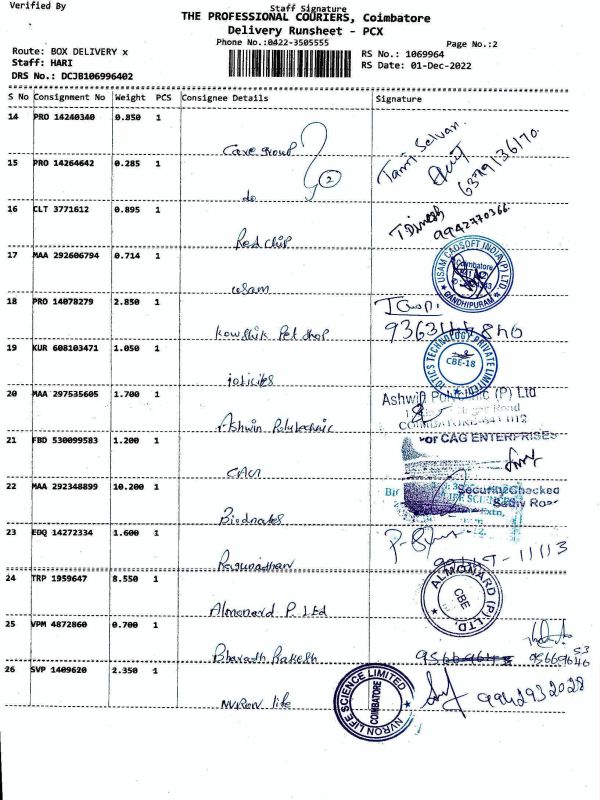 Verified By
Staff Signature
THE PROFESSIONAL COURIERS, Coimbatore
Delivery Runsheet - PCX
Phone No.:0422-3505555
Page No.:2
Route: BOX DELIVERY x
Staff: HARI
DRS No.: DCJB106996402
RS No.: 1069964
RS Date: 01-Dec-2022
S No Consignment No Weight PCS Consignee Details Signature
14 PRO 14240340 0.850 1
Care group
Tamil Selvan
15 PRO 14264642 0.285 1
2
6379136170
do
16 CLT 3771612 0.895 1
T Dinesh
9942770366
Red chip
17 MAA 292606794 0.714 1
USAM CADSOFT INDIA (P) LTD
Coimbatore
GANDHIPURAM
usam
18 PRO 14078279 2.850 1
Kowshik Pet shop
19 KUR 608103471 1.050 1
IOTICS TECHNOLOGY PRIVATE LIMITED
CBE-18
20 MAA 297535605 1.700 1
Ashwin Polyclinic (P) Ltd
Road
Ashwin Polytechnic
21 FBD 530099583 1.200 1
For CAG ENTERPRISES
CAG
22 MAA 292348899 10.200 1
Security Checked
LIFE SCIENCE
Extn,
23 EDQ 14272334 1.600 1
Ragunadhan
24 TRP 1959647 8.550 1
ALMONARD (P) LTD.
CBE
Almonard P. Ltd
25 VPM 4872860 0.700 1
Bharath Rakesh
95669646
53
26 SVP 1409620 2.350 1
NVRON LIFE SCIENCE LIMITED
COIMBATORE
9942932028
NVRON life